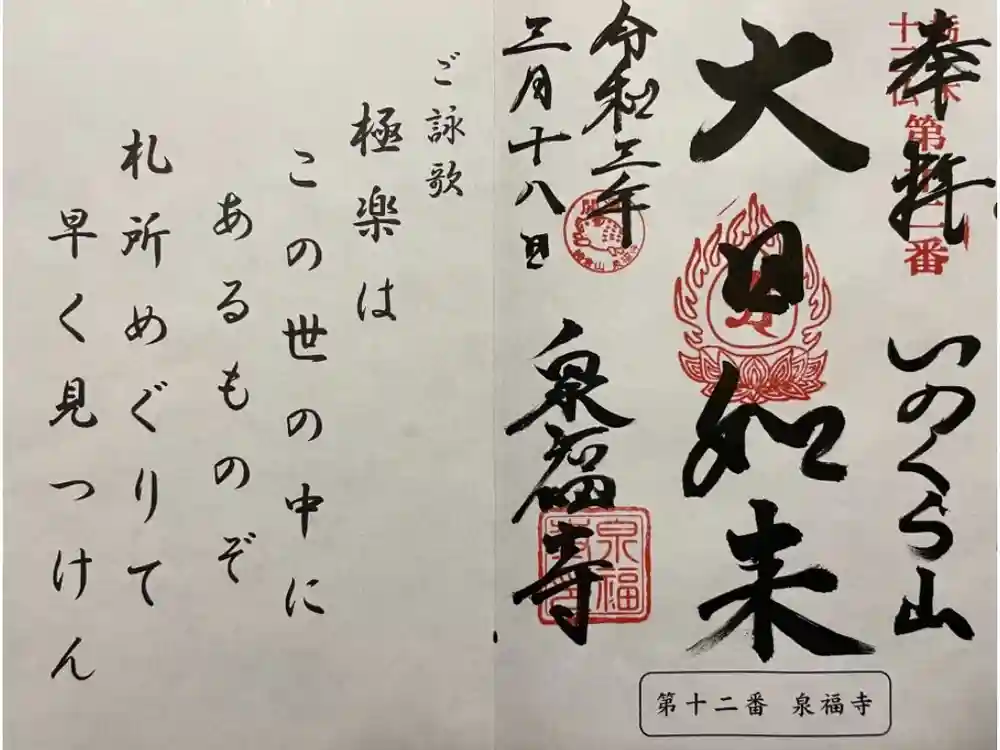 奉拝
いのくら山
栃木
十三仏
第十二番
大日如来
令和三年
三月十八日
泉福寺
泉福
第十二番 泉福寺
ご詠歌
極楽は
この世の中に
あるものぞ
札所めぐりて
早く見つけん